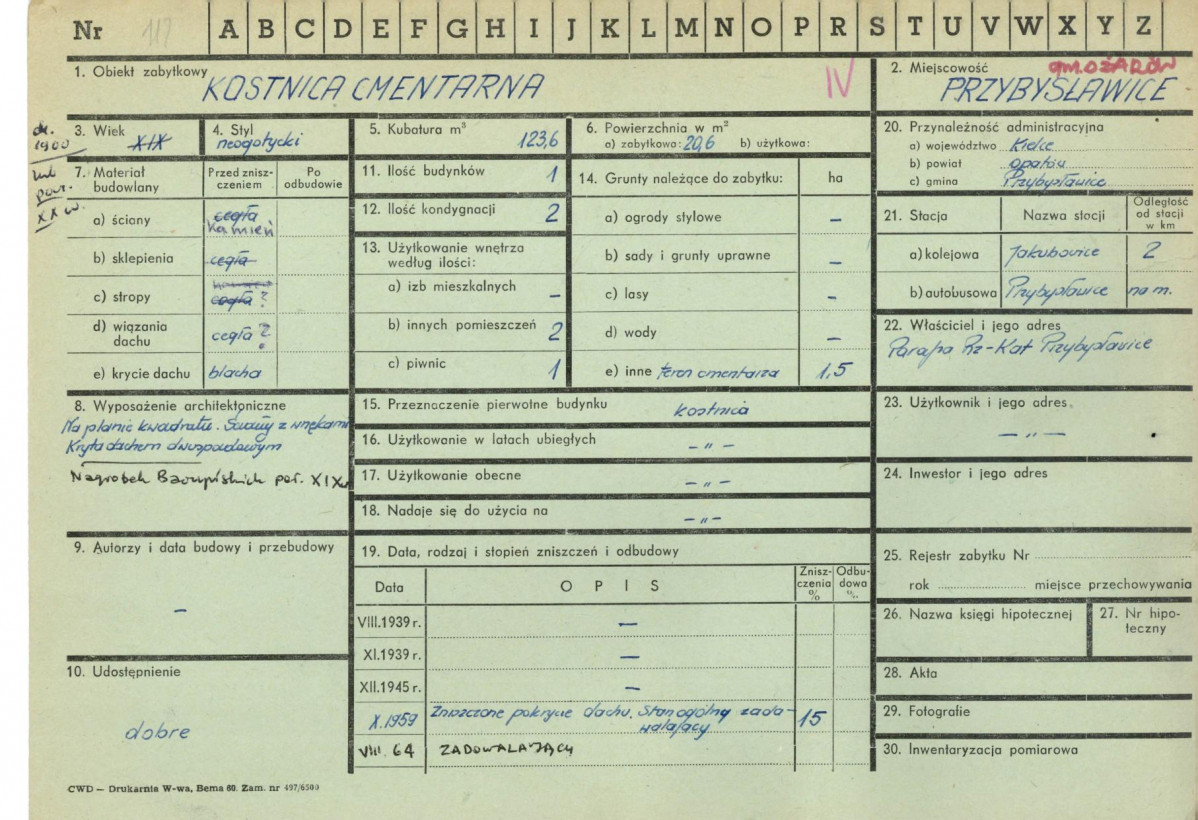 Nr 117 A B C D E F G H I J K L M N O P R S T U V W X Y Z
1. Obiekt zabytkowy
KOSTNICA CMENTARNA
IV
2. Miejscowość
gm. OŻARÓW
PRZYBYSŁAWICE
ok. 1900
lub
pocz.
XX w.
3. Wiek
XIX
4. Styl
neogotycki
5. Kubatura m³
123,6
6. Powierzchnia w m²
a) zabytkowa: 20,6 b) użytkowa:
7. Materiał budowlany
Przed zniszczeniem
Po odbudowie
a) ściany cegła
kamień
b) sklepienia cegła
c) stropy
cegła ?
d) wiązania dachu cegła ?
e) krycie dachu blacha
8. Wyposażenie architektoniczne
Na planie kwadratu. Ściany z wnękami
Kryta dachem dwuspadowym
Nagrobek poł. XIX w
9. Autorzy i data budowy i przebudowy
–
10. Udostępnienie
dobre
11. Ilość budynków 1
12. Ilość kondygnacji 2
13. Użytkowanie wnętrza
według ilości:
a) izb mieszkalnych –
b) innych pomieszczeń 2
c) piwnic 1
14. Grunty należące do zabytku: ha
a) ogrody stylowe –
b) sady i grunty uprawne –
c) lasy –
d) wody –
e) inne teren cmentarza 1,5
15. Przeznaczenie pierwotne budynku kostnica
16. Użytkowanie w latach ubiegłych – „ –
17. Użytkowanie obecne – „ –
18. Nadaje się do użycia na – „ –
19. Data, rodzaj i stopień zniszczeń i odbudowy
Data OPIS Zniszczenia % Odbudowa %
VIII.1939 r. –
XI.1939 r. –
XII.1945 r. –
X.1959 Zniszczone pokrycie dachu. Stan ogólny zada-
walający 15
VIII. 64 ZADOWALAJĄCY
20. Przynależność administracyjna
a) województwo Kielce
b) powiat Opatów
c) gmina Przybysławice
21. Stacja Nazwa stacji Odległość od stacji w km
a) kolejowa Jakubowice 2
b) autobusowa Przybysławice na m.
22. Właściciel i jego adres
Parafia Rz-Kat Przybysławice
23. Użytkownik i jego adres
– „ –
24. Inwestor i jego adres
25. Rejestr zabytku Nr
rok miejsce przechowywania
26. Nazwa księgi hipotecznej
27. Nr hipo-
teczny
28. Akta
29. Fotografie
30. Inwentaryzacja pomiarowa
CWD — Drukarnia W-wa, Bema 60. Zam. nr 497/6500